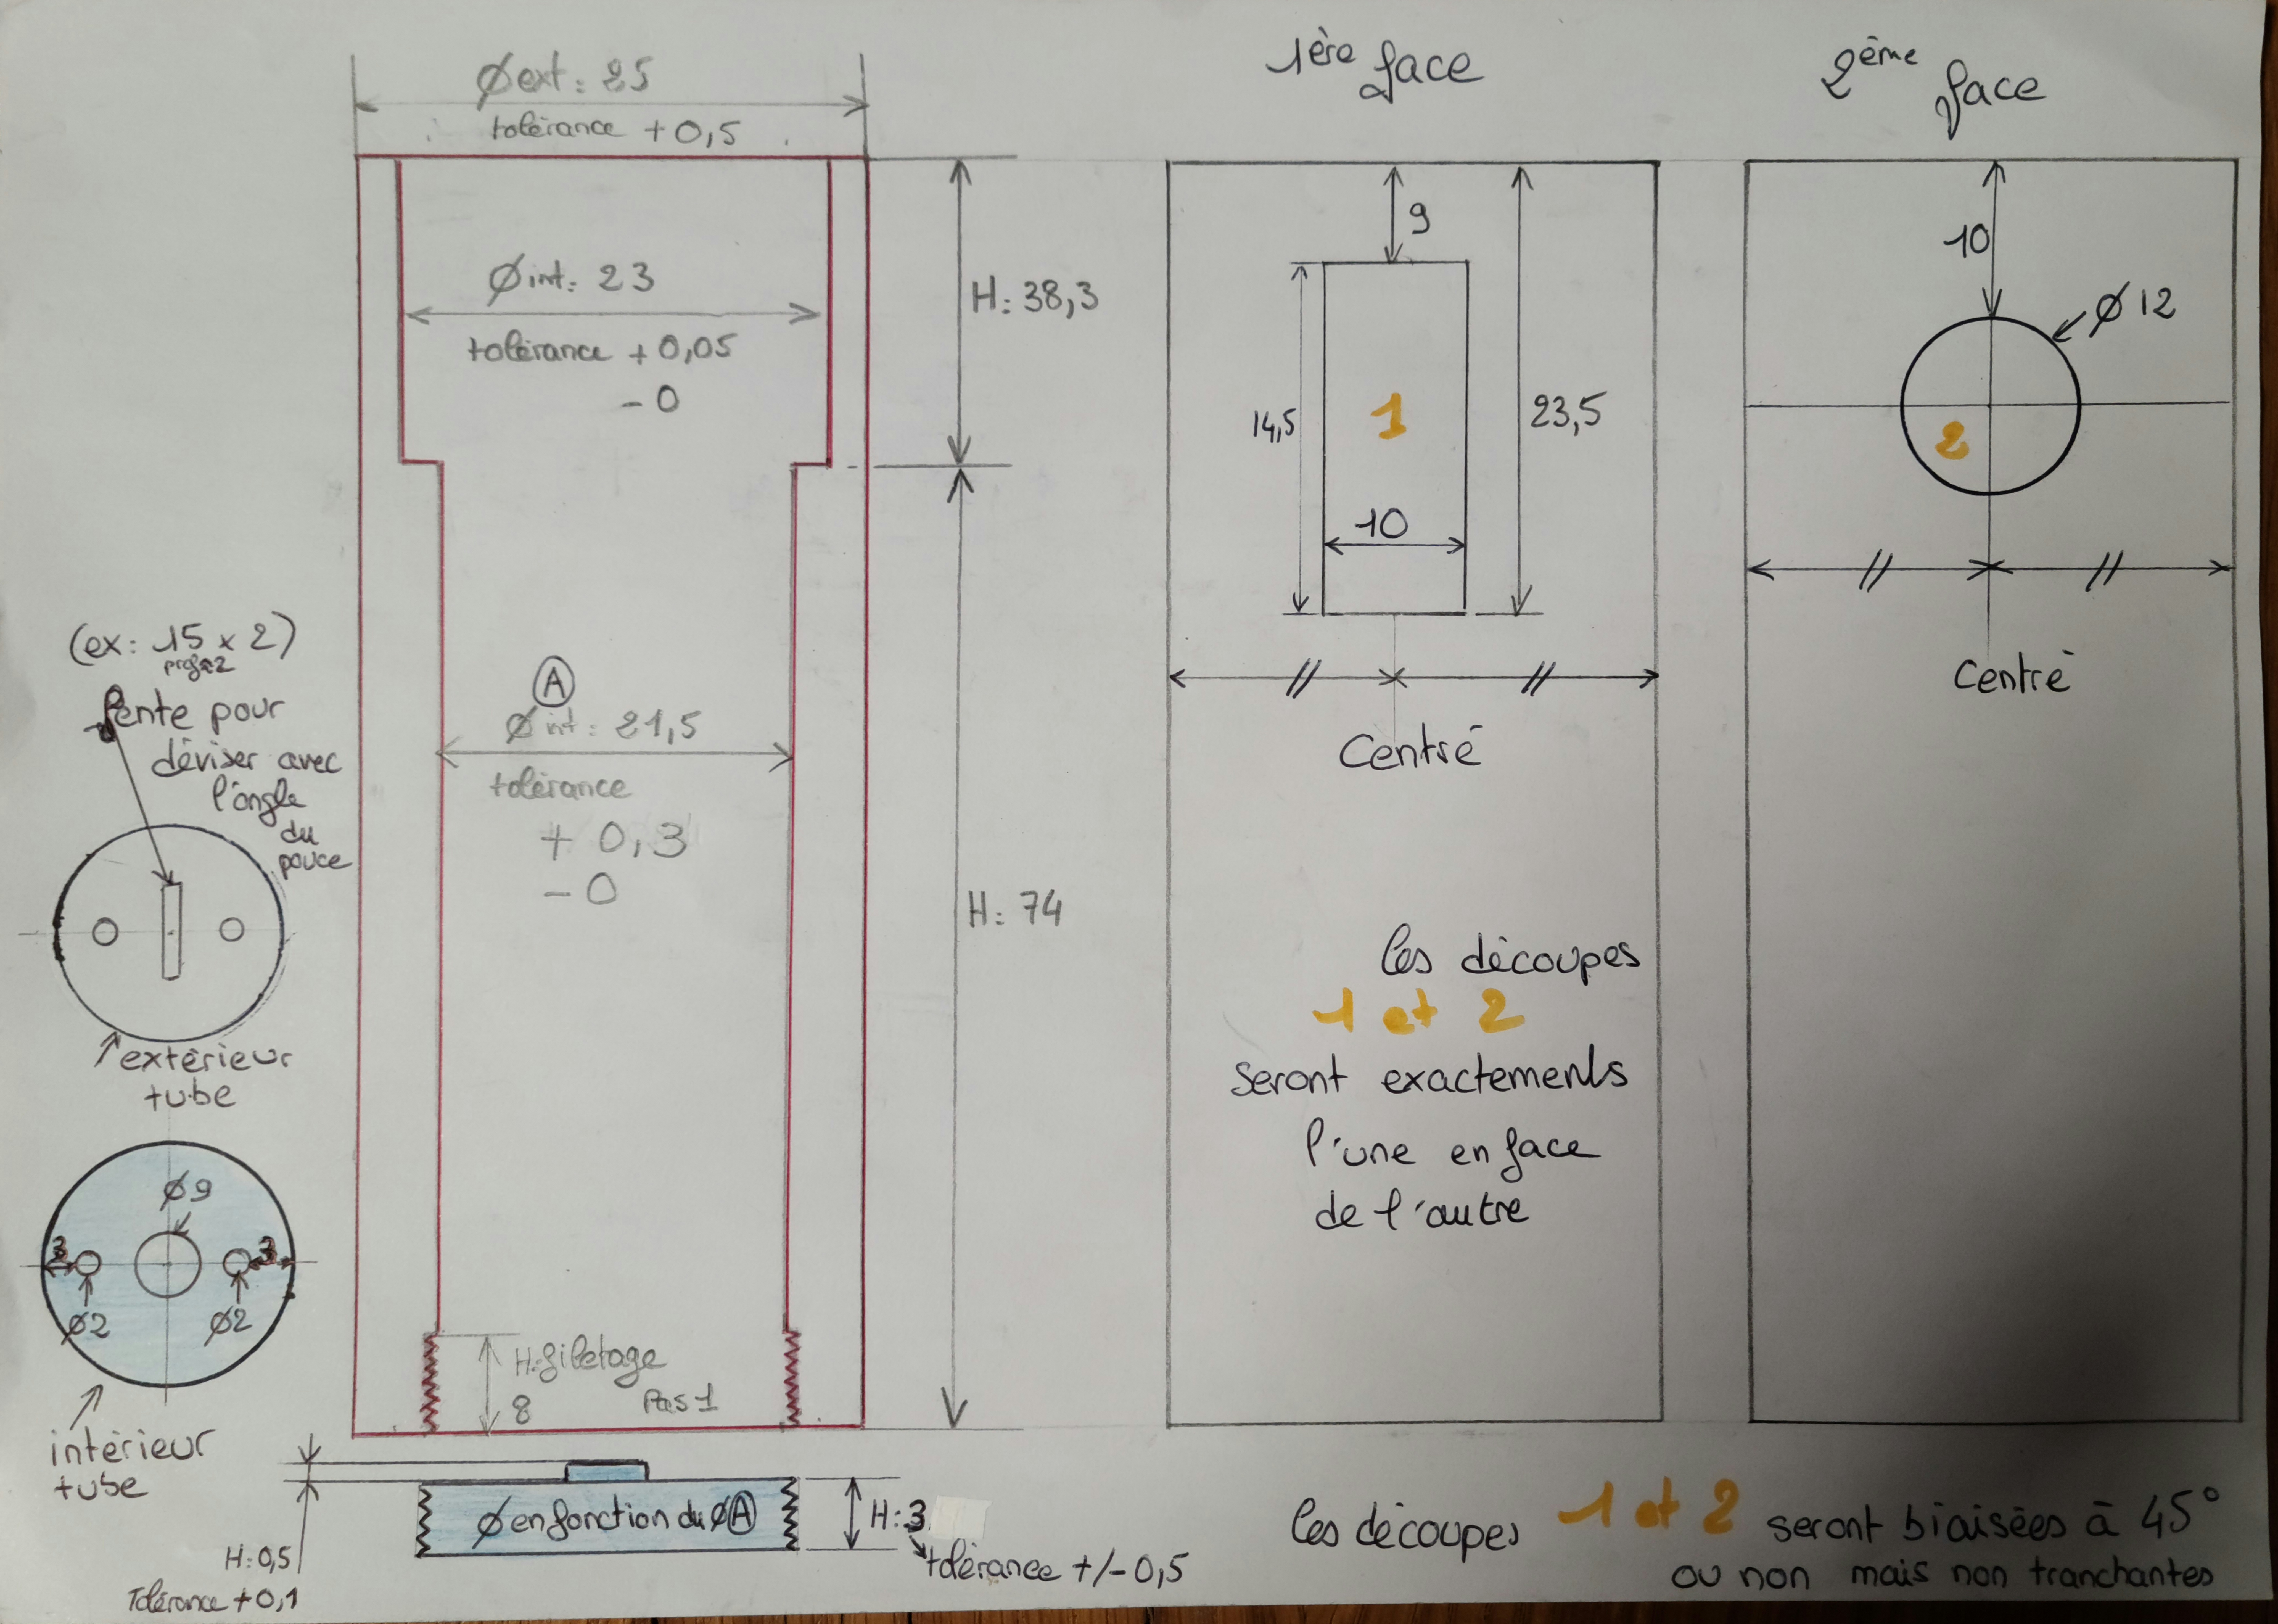 Øext: 25
tolérance +0,5
Øint: 23
tolérance +0,05
-0
H: 38,3
A
Ø int: 21,5
tolérance
+ 0,3
- 0
H: 74
H: filetage
8
Pas 1
(ex: 15 x 2)
prof 2
fente pour
déviser avec
l'ongle
du
pouce
extérieur
tube
Ø9
3
3
Ø2
Ø2
intérieur
tube
Ø en fonction du Ø A
H: 3
tolérance +/- 0,5
H: 0,5
Tolérance +0,1
1ère face
9
14,5
1
23,5
10
//
//
Centré
les découpes
1 et 2
seront exactements
l'une en face
de l'autre
2ème face
10
Ø 12
2
//
//
Centré
les découpes 1 et 2 seront biaisées à 45°
ou non mais non tranchantes